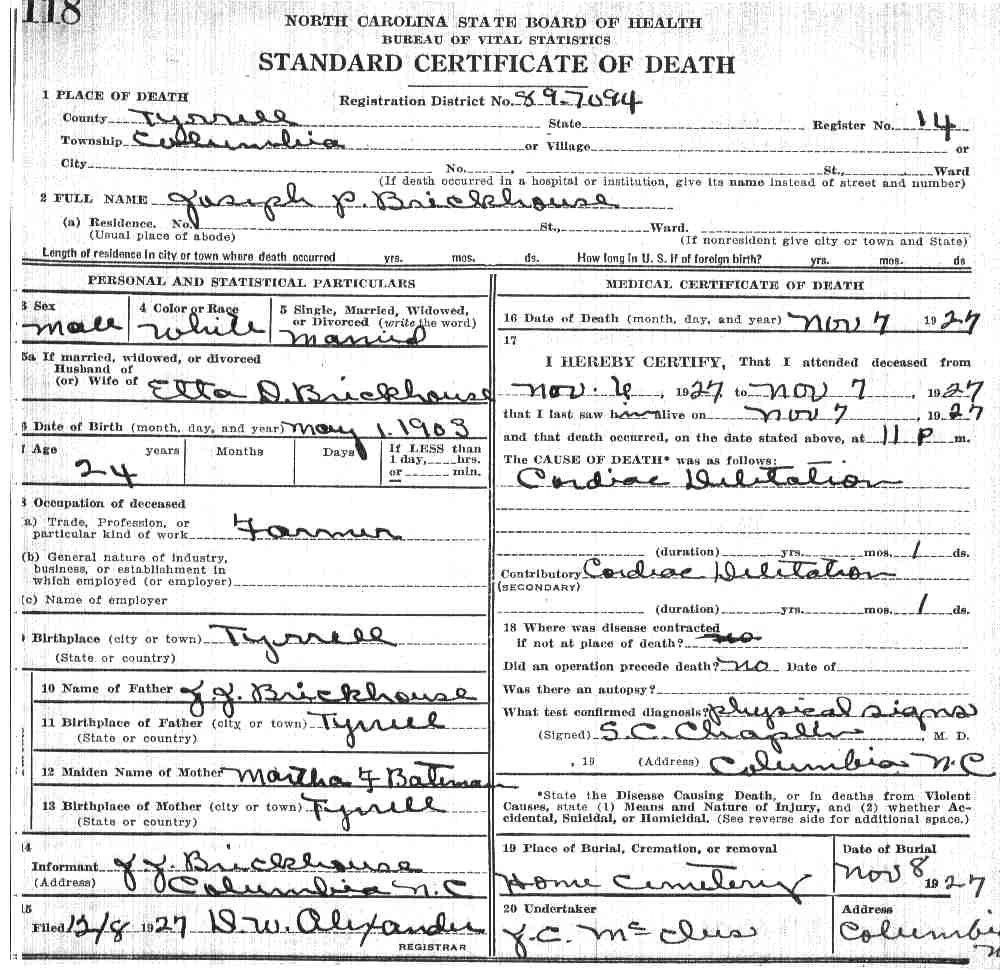 118
NORTH CAROLINA STATE BOARD OF HEALTH
BUREAU OF VITAL STATISTICS
STANDARD CERTIFICATE OF DEATH
1 PLACE OF DEATH
Registration District No. 89-7094
County Tyrrell State Register No. 14
Township Collumbia or Village or
City No. , St., Ward
(If death occurred in a hospital or institution, give its name instead of street and number)
2 FULL NAME Joseph P. Brickhouse
(a) Residence. No. St., Ward.
(Usual place of abode) (If nonresident give city or town and State)
Length of residence in city or town where death occurred yrs. mos. ds. How long in U. S. if of foreign birth? yrs. mos. ds
PERSONAL AND STATISTICAL PARTICULARS
3 Sex
Male
4 Color or Race
White
5 Single, Married, Widowed,
or Divorced (write the word)
Married
5a If married, widowed, or divorced
Husband of
(or) Wife of Etta D. Brickhouse
6 Date of Birth (month, day, and year) May 1. 1903
7 Age years Months Days
24
If LESS than
1 day, hrs.
or min.
8 Occupation of deceased
(a) Trade, Profession, or
particular kind of work Farmer
(b) General nature of industry,
business, or establishment in
which employed (or employer)
(c) Name of employer
9 Birthplace (city or town) Tyrrell
(State or country)
10 Name of Father J. J. Brickhouse
11 Birthplace of Father (city or town) Tyrrell
(State or country)
12 Maiden Name of Mother Martha F Bateman
13 Birthplace of Mother (city or town) Tyrrell
(State or country)
14
Informant J. J. Brickhouse
(Address) Columbia N.C
15
Filed 12/8 1927 D. W. Alexander
REGISTRAR
MEDICAL CERTIFICATE OF DEATH
16 Date of Death (month, day, and year) Nov 7 1927
17
I HEREBY CERTIFY, That I attended deceased from
Nov. , 1927, to Nov 7 , 1927
that I last saw him alive on Nov 7 , 1927
and that death occurred, on the date stated above, at 11 P m.
The CAUSE OF DEATH* was as follows:
Cordiac Dilitation
(duration) yrs. mos. 1 ds.
Contributory Cordiac Dilitation
(SECONDARY)
(duration) yrs. mos. 1 ds.
18 Where was disease contracted
if not at place of death? no
Did an operation precede death? no Date of
Was there an autopsy?
What test confirmed diagnosis? physical signs
(Signed) S. C. Chaplin M. D.
, 19 (Address) Columbia N.C
*State the Disease Causing Death, or in deaths from Violent
Causes, state (1) Means and Nature of Injury, and (2) whether Ac-
cidental, Suicidal, or Homicidal. (See reverse side for additional space.)
19 Place of Burial, Cremation, or removal
Home Cemetery
Date of Burial
Nov 8 1927
20 Undertaker
J. C. McClus
Address
Columbi